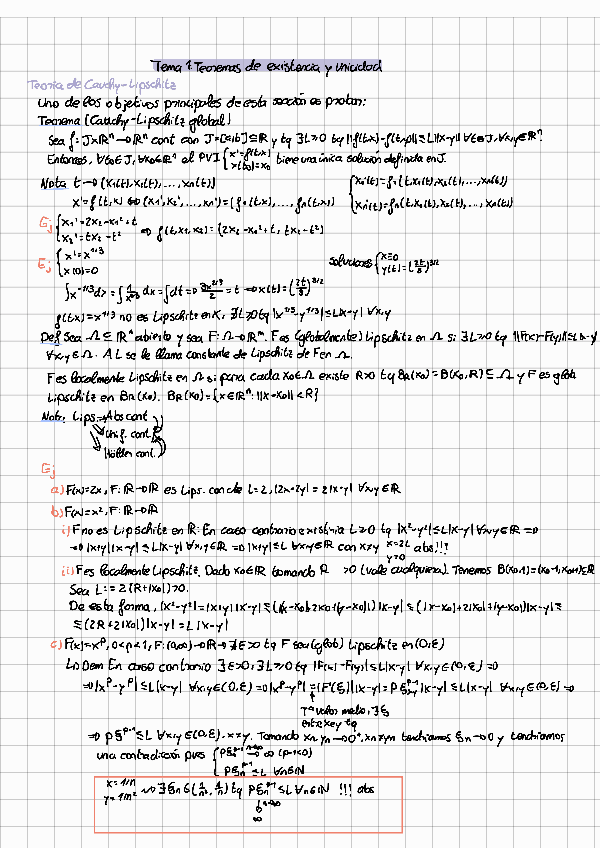 Tema 1: Teoremas de existencia y unicidad
Teoría de Cauchy-Lipschitz
Uno de los objetivos principales de esta sección es probar:
Teorema (Cauchy-Lipschitz global)
Sea f: J×ℝⁿ → ℝⁿ cont con J=[a,b]⊆ℝ y tq ∃L≥0 tq ||f(t,x)-f(t,y)|| ≤ L||x-y|| ∀t∈J, ∀x,y∈ℝⁿ.
Entonces, ∀t₀∈J, ∀x₀∈ℝⁿ el PVI { x'=f(t,x) x(t₀)=x₀ tiene una única solución definida en J.
Nota t→(x₁(t),x₂(t),...,xₙ(t))
{ x₁'(t)=f₁(t,x₁(t),x₂(t),...,xₙ(t))
x'=f(t,x) ⇔ (x₁',x₂',...,xₙ')=(f₁(t,x),...,fₙ(t,x))
xₙ'(t)=fₙ(t,x₁(t),x₂(t),...,xₙ(t))
Ej { x₁'=2x₂-x₁²+t x₂'=tx₂-t² ⇔ f(t,x₁,x₂)=(2x₂-x₁²+t, tx₂-t²)
Ej { x'=x^{1/3} x(0)=0
soluciones { x≡0 y(t)=(2t/3)^{3/2}
∫x^{-1/3}dx=∫1/x^{1/3} dx=∫dt ⇒ 3x^{2/3}/2 = t ⇒ x(t)=(2t/3)^{3/2}
f(t,x)=x^{1/3} no es Lipschitz en x, ∄L≥0 tq |x^{1/3}-y^{1/3}| ≤ L|x-y| ∀x,y
Def Sea Ω⊆ℝⁿ abierto y sea F: Ω→ℝᵐ. F es (globalmente) Lipschitz en Ω si ∃L≥0 tq ||F(x)-F(y)||≤L||x-y||
∀x,y∈Ω. A L se le llama constante de Lipschitz de F en Ω.
F es localmente Lipschitz en Ω si para cada x₀∈Ω existe R>0 tq B_R(x₀)=B(x₀,R)⊆Ω y F es glob
Lipschitz en B_R(x₀). B_R(x₀)={x∈ℝⁿ: ||x-x₀||<R}
Nota: Lips → Abs cont
Unif. cont.
Hölder cont.
Ej
a) F(x)=2x, F: ℝ→ℝ es Lips. con cte L=2, |2x-2y|=2|x-y| ∀x,y∈ℝ
b) F(x)=x², F: ℝ→ℝ
i) F no es Lipschitz en ℝ: En caso contrario existiría L≥0 tq |x²-y²|≤L|x-y| ∀x,y∈ℝ ⇒
⇒ |x+y||x-y| ≤ L|x-y| ∀x,y∈ℝ ⇒ |x+y|≤L ∀x,y∈ℝ con x≠y x=2L y=0 abs!!!
ii) F es localmente Lipschitz. Dado x₀∈ℝ tomando R >0 (vale cualquiera). Tenemos B(x₀,1)=(x₀-1,x₀+1)⊆ℝ
Sea L:=2(R+|x₀|)>0.
De esta forma, |x²-y²|=|x+y||x-y| ≤ (|x-x₀+2x₀+(y-x₀)|)|x-y| ≤ (|x-x₀|+2|x₀|+|y-x₀|)|x-y| ≤
≤(2R+2|x₀|)|x-y|=L|x-y|
c) F(x)=xᵖ, 0<p<1, F: (0,∞)→ℝ ⇒ ∄ε>0 tq F sea (glob) Lipschitz en (0,ε)
↳ Dem En caso contrario ∃ε>0, ∃L≥0 tq |F(x)-F(y)|≤L|x-y| ∀x,y∈(0,ε) ⇒
⇒|xᵖ-yᵖ|≤L|x-y| ∀x,y∈(0,ε) ⇒|xᵖ-yᵖ|=|F'(ξ)||x-y|=pξ^{p-1}|x-y|≤L|x-y| ∀x,y∈(0,ε) ⇒
Tª valor medio, ∃ξ
entre x e y tq
⇒ pξ^{p-1}≤L ∀x,y∈(0,ε), x≠y. Tomando xₙ,yₙ→0⁺, xₙ≠yₙ tendríamos ξₙ→0 y tendríamos
una contradicción pues { pξₙ^{p-1} → ∞ (p-1<0)
pξₙ^{p-1}≤L ∀n∈ℕ
x=1/n y=1/n² ⇒ ∃ξₙ∈(1/n²,1/n) tq pξₙ^{p-1}≤L ∀n∈ℕ !!! abs
↓ n→∞
∞